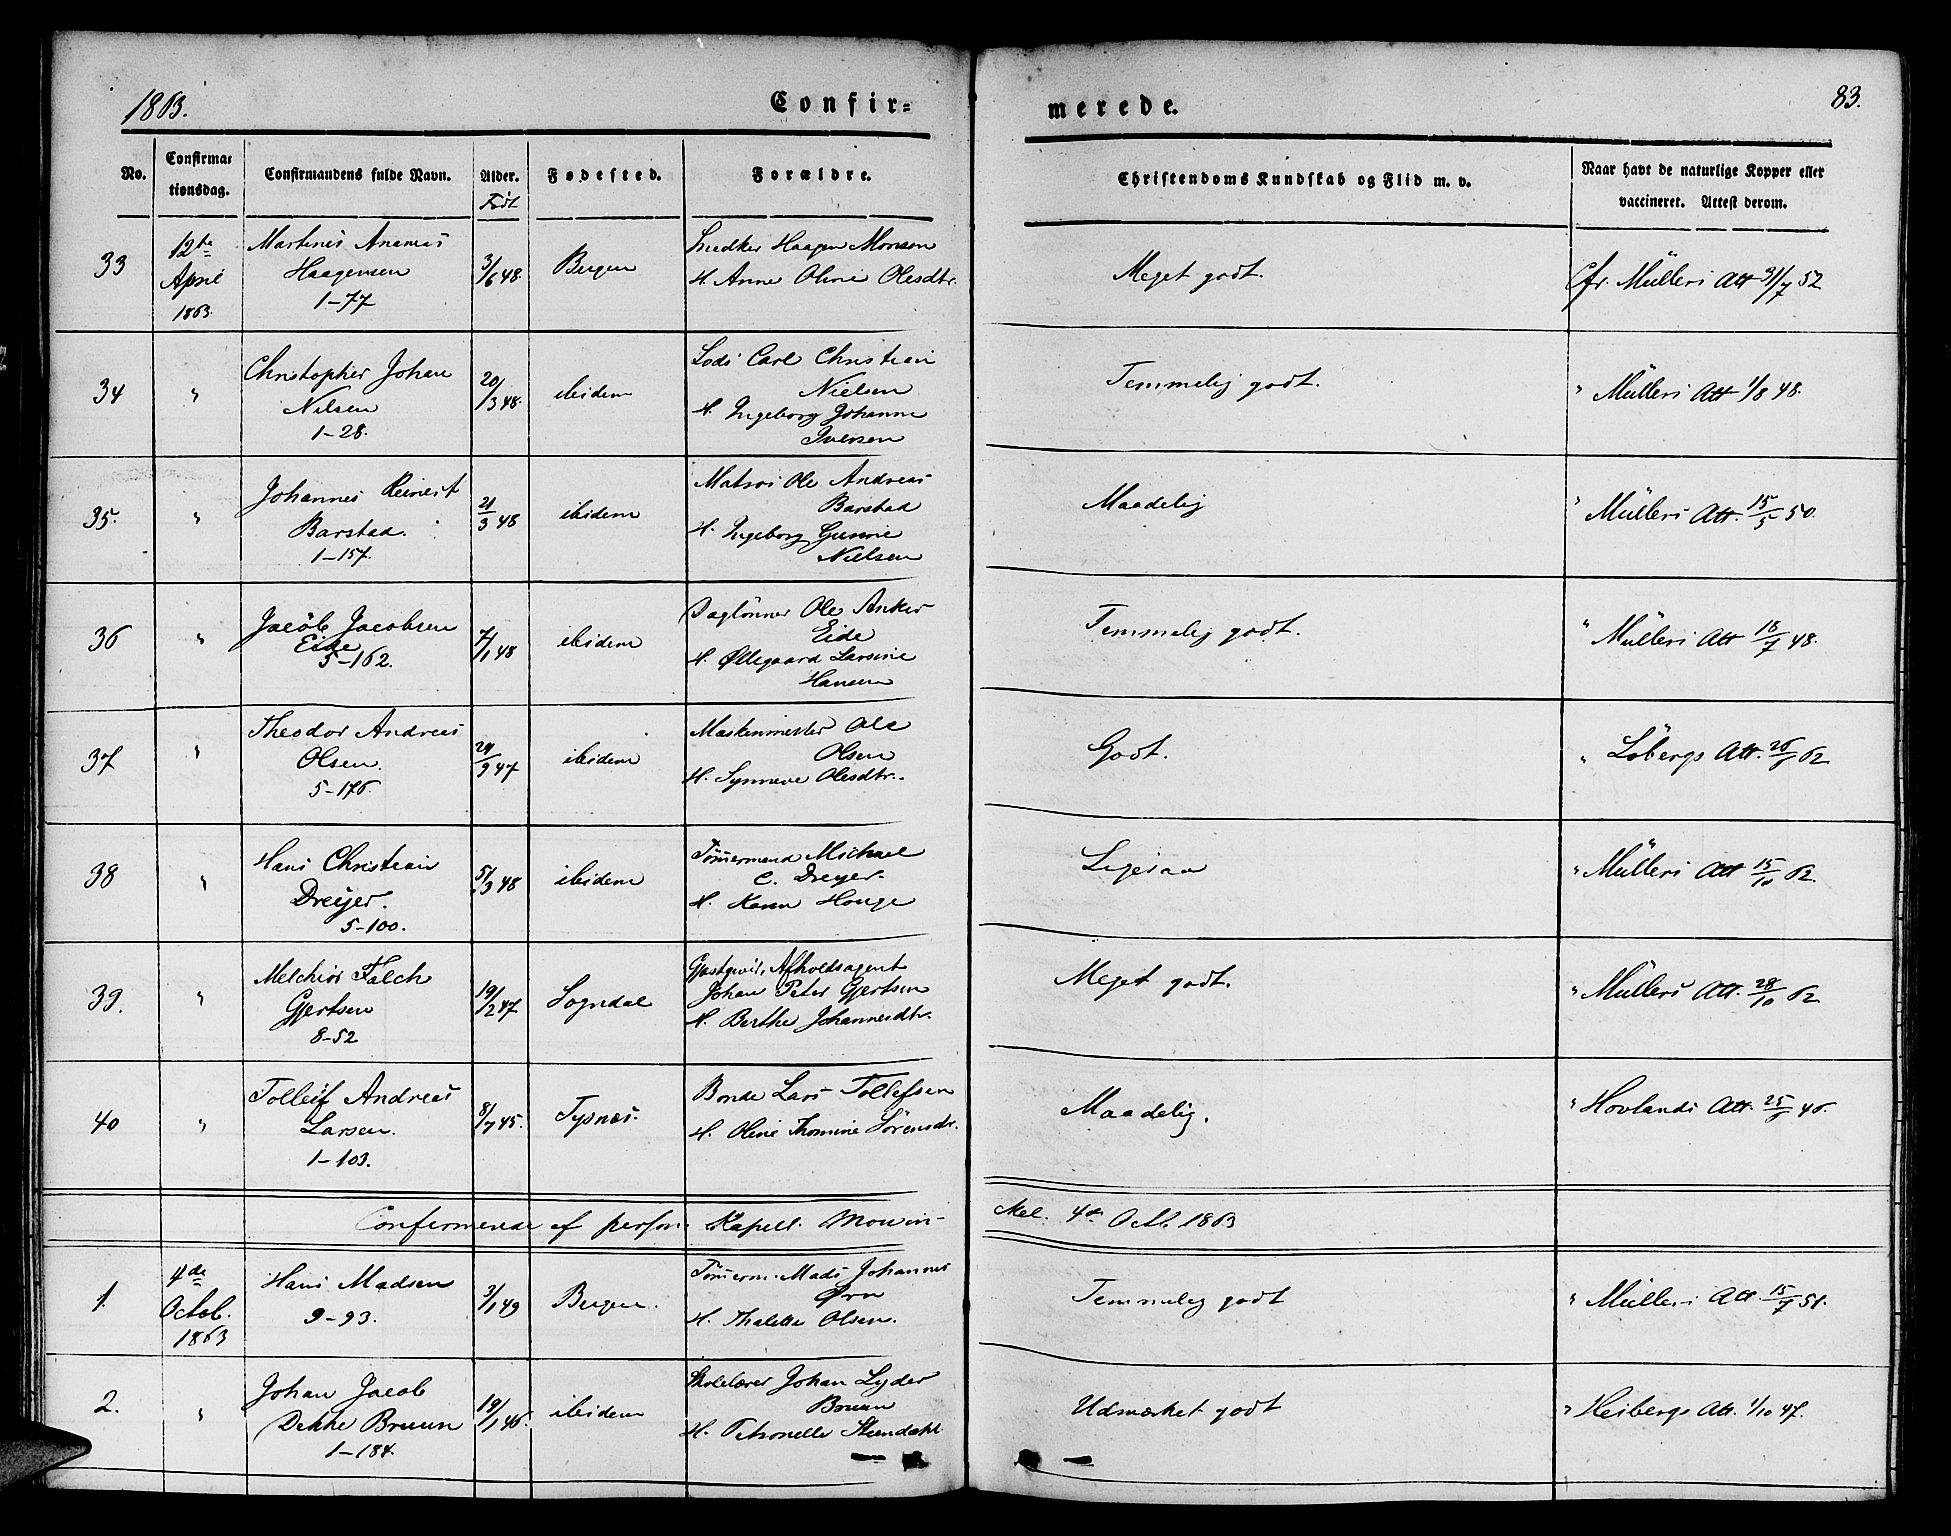 1863.
Confir=
merede.
83.
No.
Confirma=
tionsdag.
Confirmandens fulde Navn.
Alder.
Født
Fødested.
Forældre.
Christendoms Kundskab og Flid m. v.
Naar havt de naturlige Kopper eller
vaccineret. Attest derom.
33
12te
April
1863.
Martinus Ananias
Haagensen
1-77
3/6 48.
Bergen
Snedker Haagen Monsen
H. Anne Oline Olesdtr.
Meget godt.
Cfr. Müllers Att 31/7 52
34
"
Christopher Johan
Nilsen
1-28.
20/3 48.
ibidem
Lods Carl Christian
Nielsen
H. Ingeborg Johanne
Iversen
Temmelig godt.
" Müllers Att 1/8 48.
35.
"
Johannes Reinert
Barstad.
1-157.
21/3 48
ibidem
Matros Ole Andreas
Barstad
H. Ingeborg Gurine
Nielsen
Maadelig
" Müllers Att. 15/5 50.
36
"
Jacob Jacobsen
Eide
5-162.
7/1 48
ibidem
Daglönner Ole Anker
Eide
H. Øllegaard Larsine
Hansen
Temmelig godt.
" Müllers Att 18/7 48.
37
"
Theodor Andreas
Olsen.
5-176.
24/9 47
ibidem
Maskinmester Ole
Olsen
H. Synneve Olesdtr.
Godt.
" Löbergs Att. 26/ 62
38
"
Hans Christian
Dreyer.
5-100.
5/3 48
ibidem
Tömmermand Michael
C. Dreyer.
H. Karen Houge
Ligesaa
" Müllers Att 15/10 62.
39.
"
Melchior Falch
Gjertsen
8-52
19/2 47
Sogndal
Gjestgiver, Afholdsagent
Johan Peter Gjertsen
H. Berthe Johannesdtr.
Meget godt.
" Müllers Att. 28/10 62
40
"
Tolleif Andreas
Larsen.
1-103.
8/7 45.
Tysnæs.
Bonde Lars Tollefsen
H. Oline Thomine Sörensdtr.
Maadelig.
" Hovlands Att. 25/ 46.
Confirmerede af person. Kapell. Mowin-
kel. 4de Octb. 1863
1.
4de
Octob.
1863
Hans Madsen
9-93.
3/1 49
Bergen.
Tömerm. Mads Johannes
Ørn
H. Thalette Olsen.
Temmelig godt
" Müllers Att. 15/7 51.
2.
"
Johan Jacob
Dekke Bruun
1-184.
19/1 46.
ibidem
Skolelærer Johan Lyder
Bruun
H. Petronelle Steendahl
Udmærket godt
" Heibergs Att. 1/10 47.